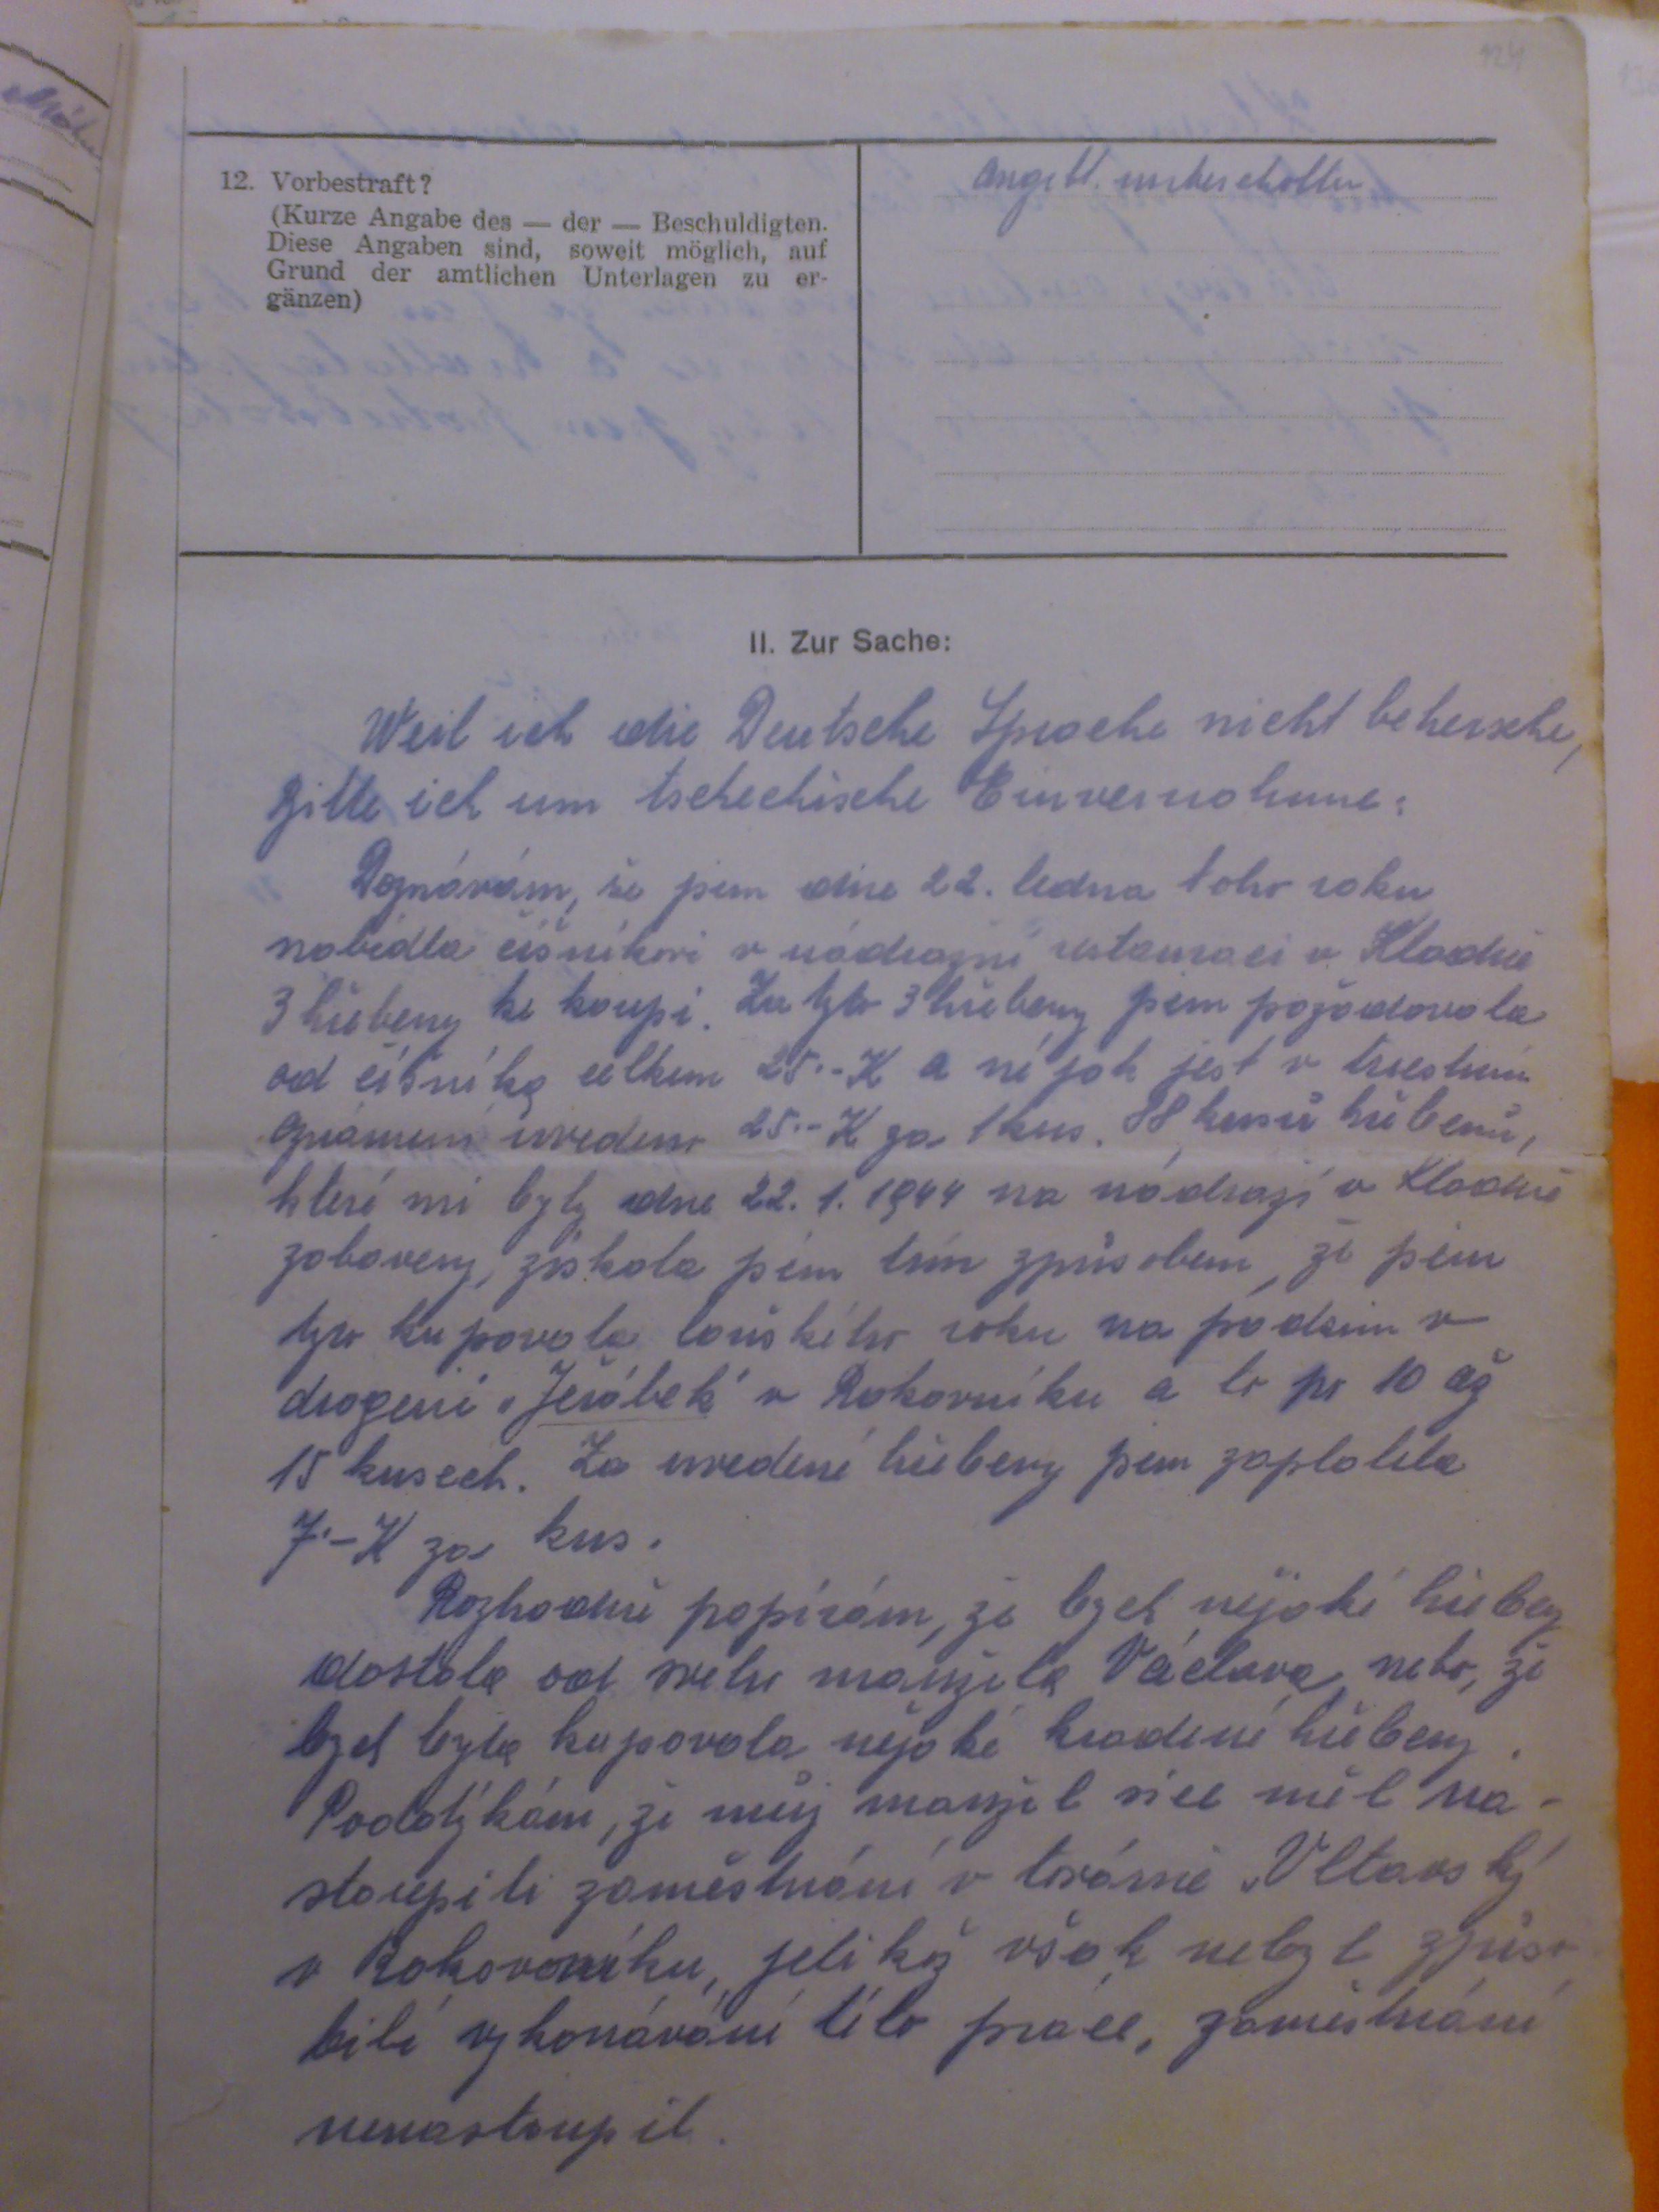 124
12. Vorbestraft?
(Kurze Angabe des — der — Beschuldigten.
Diese Angaben sind, soweit möglich, auf
Grund der amtlichen Unterlagen zu er-
gänzen)
angebl. unbescholten
II. Zur Sache:
Weil ich die Deutsche Sprache nicht behersche,
bitte ich um tschechische Einvernahme:
Doznávám, že jsem dne 22. ledna toho roku
nabídla číšníkovi v nádražní restauraci v Kladně
3 hřebeny ke koupi. Za tyto 3 hřebeny jsem požadovala
od číšníka celkem 25.-K a ne jak jest v trestním
oznámení uvedeno 25.-K za 1 kus. 88 kusů hřebenů,
které mi byly dne 22. 1. 1944 na nádraží v Kladně
zabaveny, získala jsem tím způsobem, že jsem
tyto kupovala loňského roku na podzim v
drogerii „Jeřábek" v Rakovníku a to po 10 až
15 kusech. Za uvedené hřebeny jsem zaplatila
7.-K za kus.
Rozhodně popírám, že bych nějaké hřebeny
dostala od svého manžela Václava, nebo, že
bych byla kupovala nějaké kradené hřebeny.
Podotýkám, že můj manžel sice měl na-
stoupiti zaměstnání v továrně „Vltavský
v Rakovníku, jelikož však nebyl způso-
bilí vykonávání této práce, zaměstnání
nenastoupil.